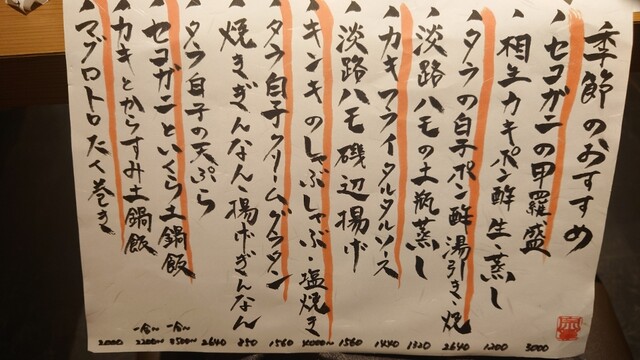 季節のおすすめ
・セコガニの甲羅盛 3000
・相生カキポン酢 生・蒸し 1200
・タラの白子ポン酢 湯引き・焼 2640
・淡路ハモの土瓶蒸し 1320
・カキフライタルタルソース 1440
・淡路ハモ磯辺揚げ 1560
・キンキのしゃぶしゃぶ・塩焼き 4000〜
・タラ白子クリームグラタン 1560
・焼きぎんなん・揚げぎんなん 850
・タラ白子の天ぷら 2640
・セコガニといくら土鍋飯 一合〜 3500〜
・カキとからすみ土鍋飯 一合〜 2200〜
・マグロトロたく巻き 2000